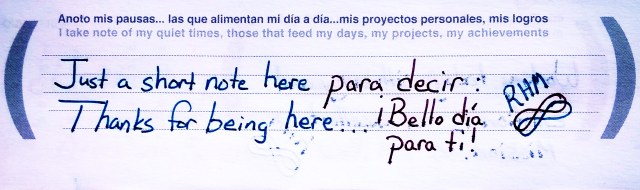 Anoto mis pausas... las que alimentan mi día a día...mis proyectos personales, mis logros
I take note of my quiet times, those that feed my days, my projects, my achievements
Just a short note here para decir:
Thanks for being here... ¡Bello día
para ti!
RHM